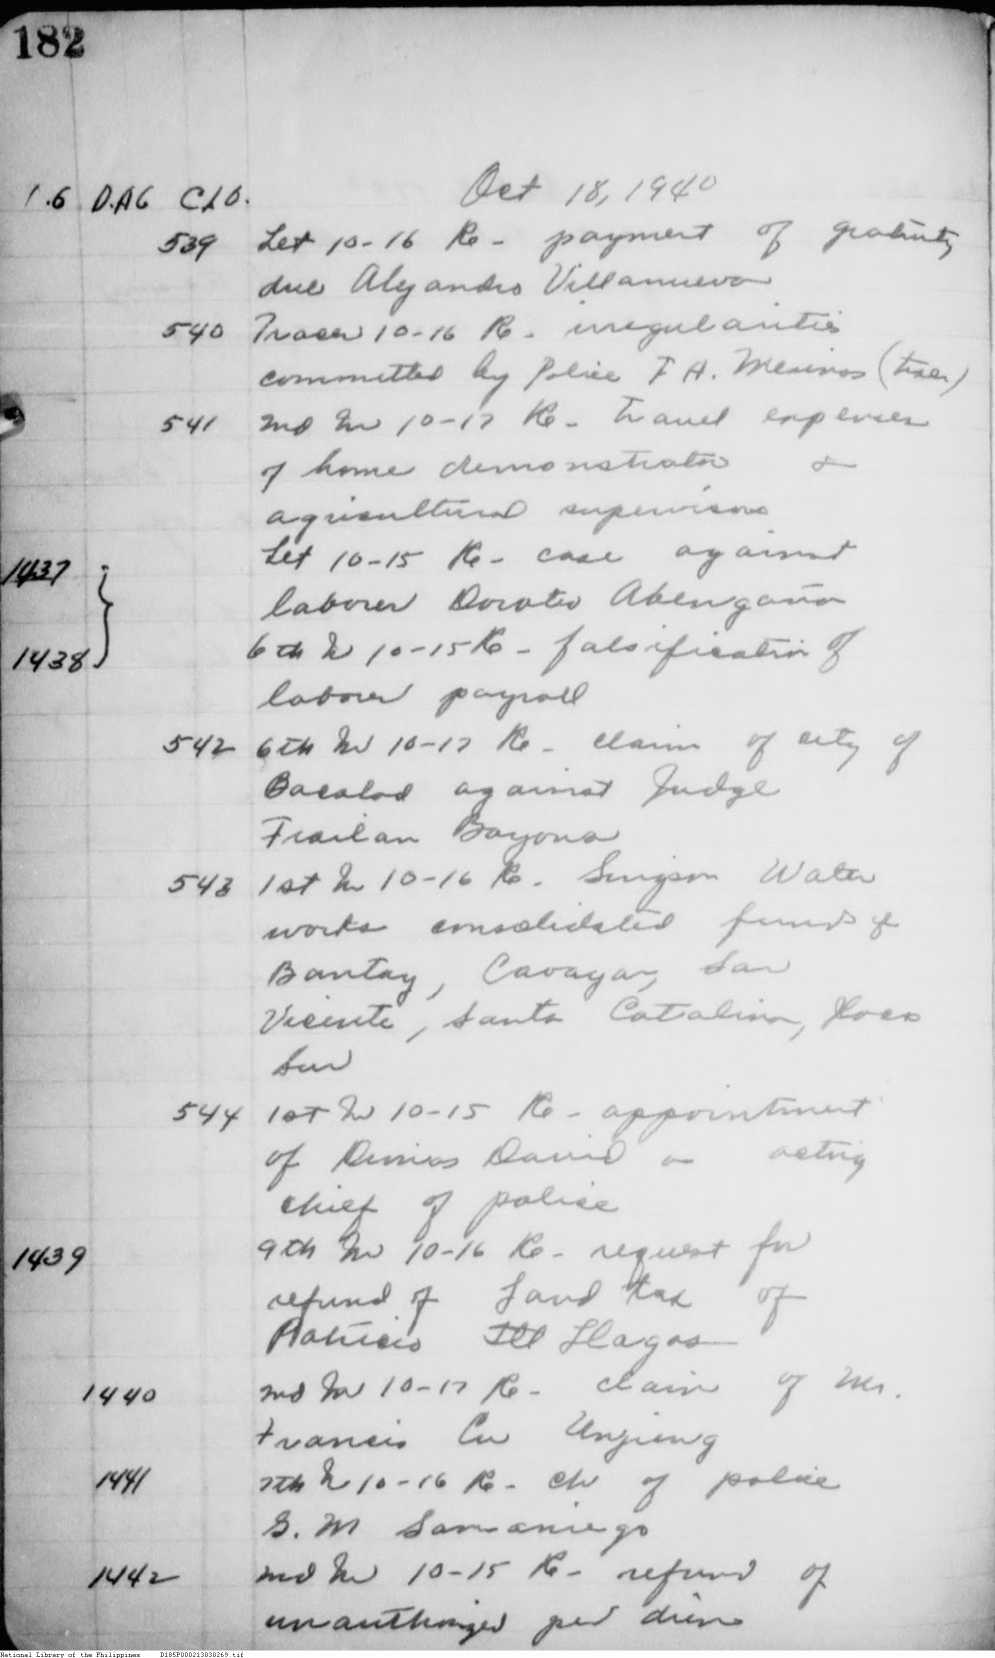 182
Oct 18, 1940
1.6 D.AG C.L.O.
539 Let 10-16 Re- payment of gratuity
due Alejandro Villanueva
540 Tracer 10-16 Re- irregularities
committed by Police F A. Merinos
541 10-17 Re- travel expenses
of home demonstrator &
agricultural supervisors
1437 Let 10-15 Re- case against
laborer Doroteo Abengaña
1438 6th 10-15 Re- falsification of
laborer payroll
542 6th 10-17 Re- claim of city of
Bacolod against Judge
Froilan Bayona
543 1st 10-16 Re- Singson Water
works consolidated fund of
Bantay, Caoayan, San
Vicente, Santa Catalina, Ilocos
Sur
544 1st 10-15 Re- appointment
of Dimas David as acting
chief of police
1439 9th 10-16 Re- request for
refund of Land tax of
Patricio Llagas
1440 10-17 Re- claim of Mr.
Francis Cu Unjieng
1441 7th 10-16 Re- of police
G. M Samaniego
1442 10-15 Re- refund of
unauthorized per diem
National Library of the Philippines D185P000213030269.tif